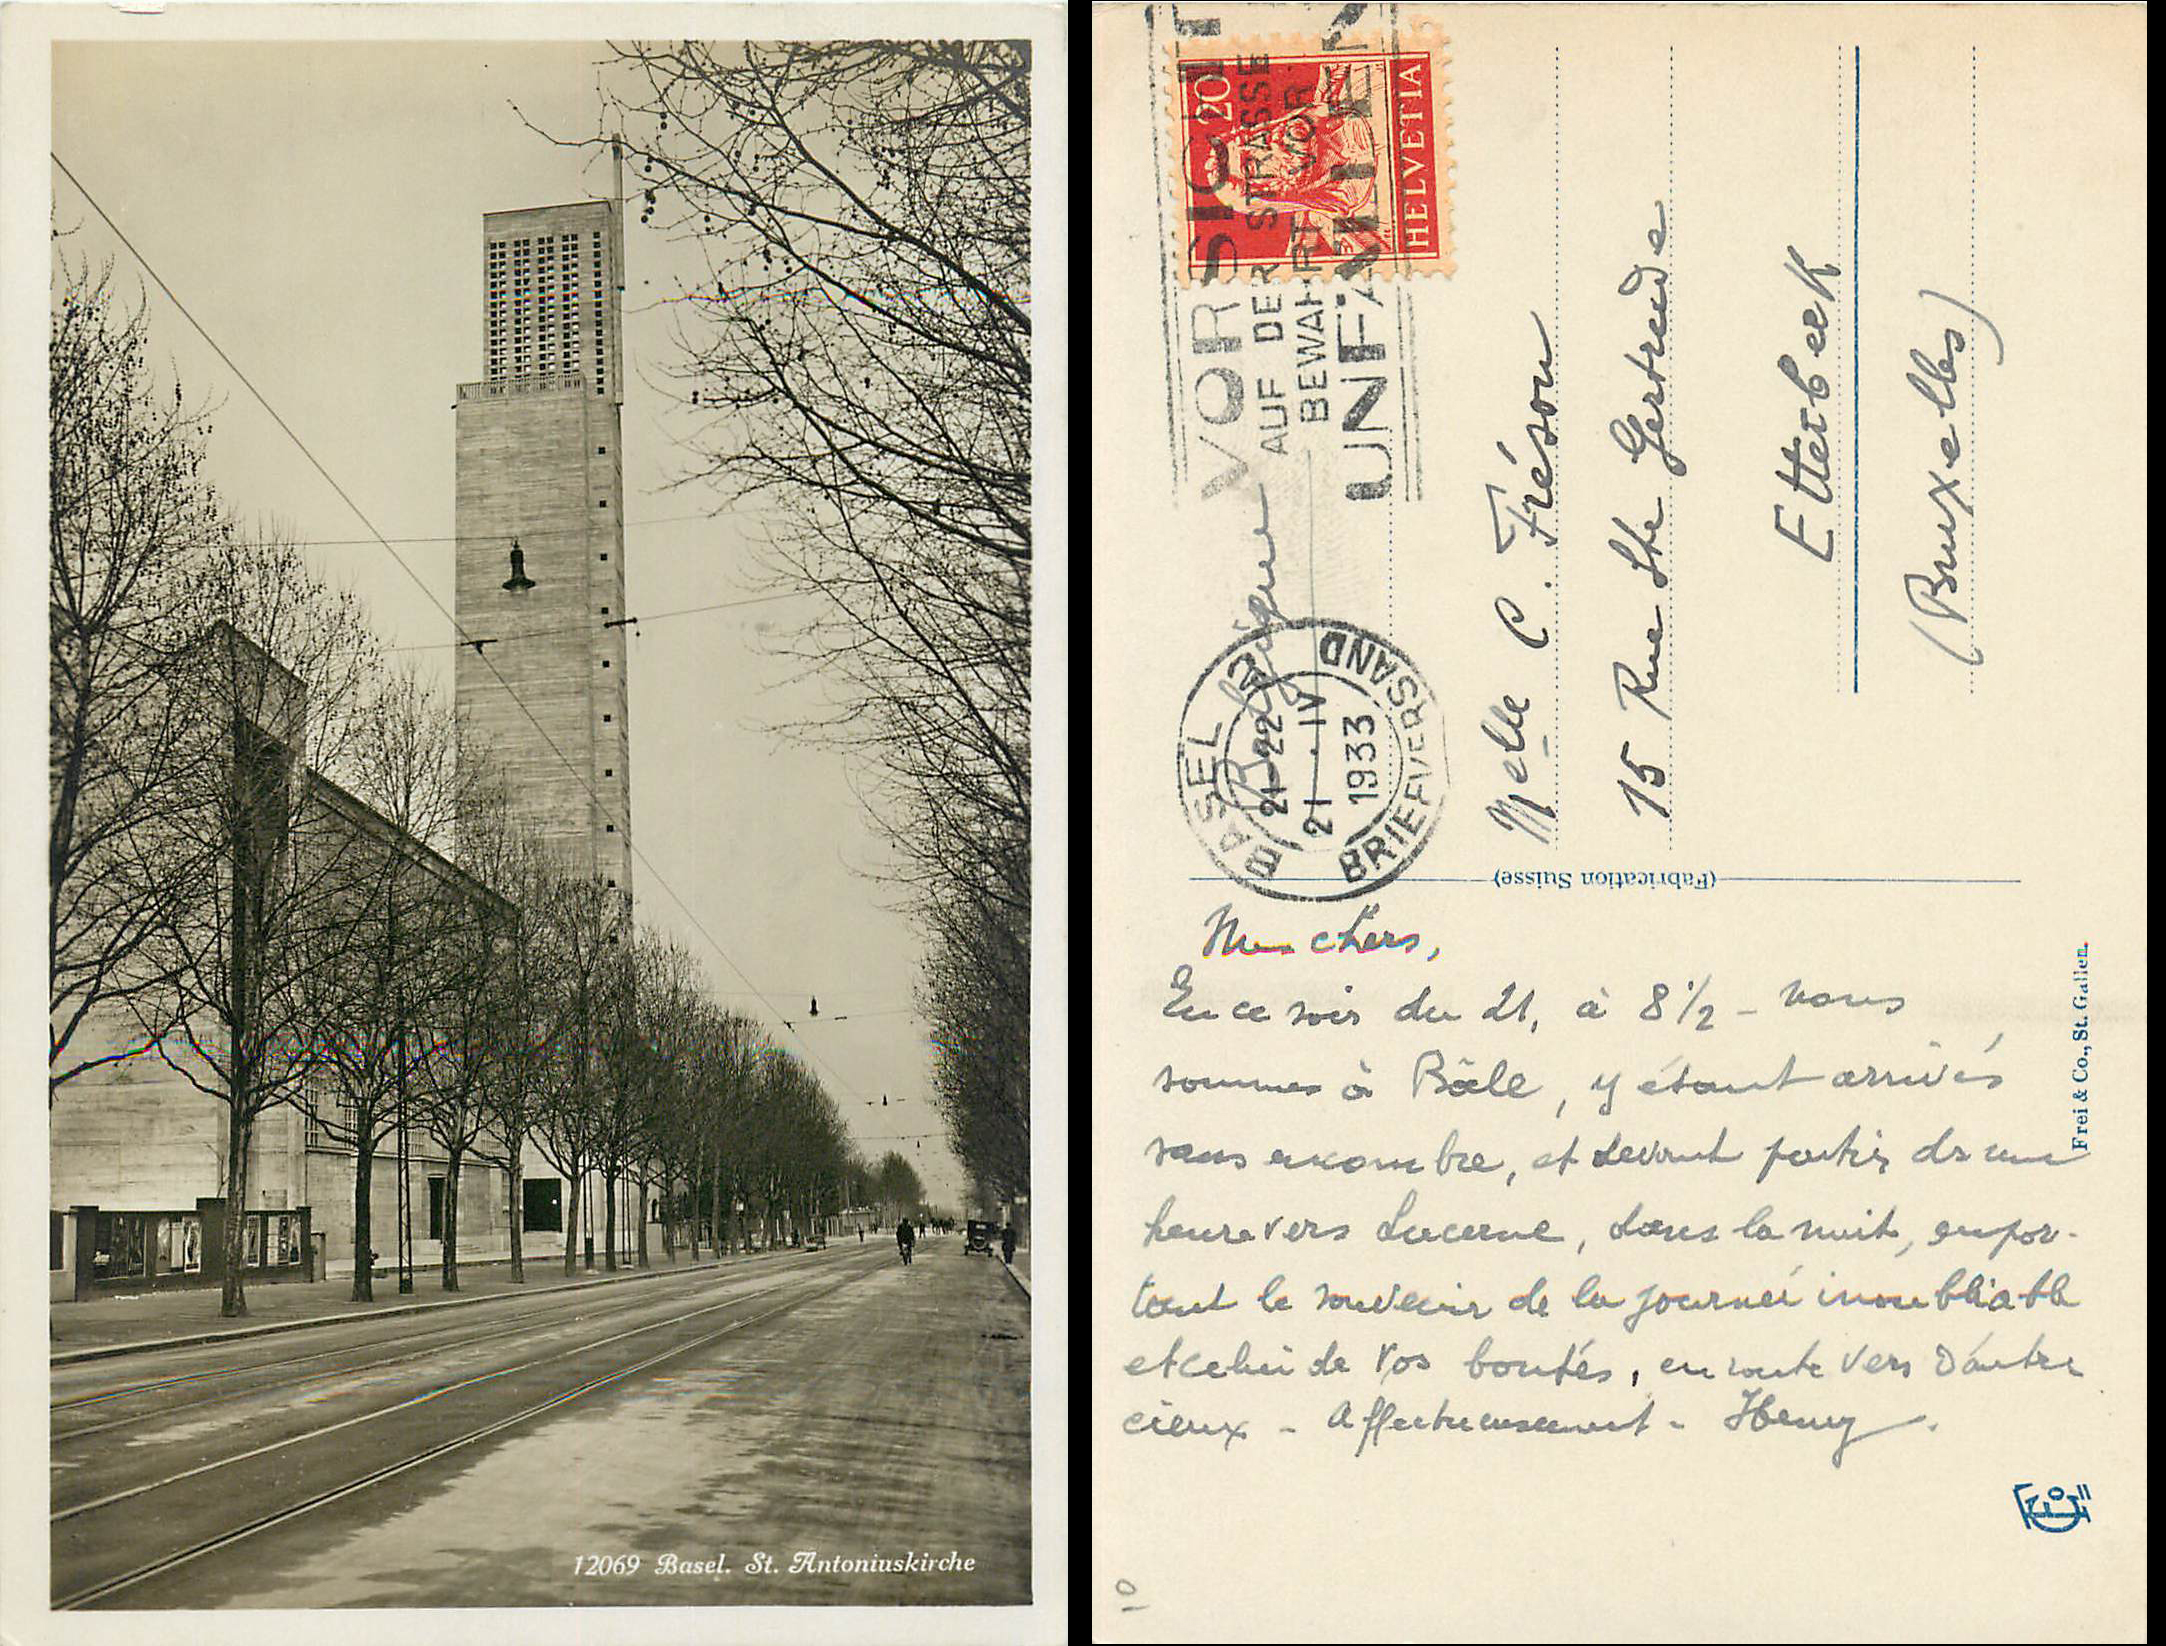 12069 Basel. St. Antoniuskirche
20
HELVETIA
VORSICHT
AUF DER STRASSE
BEWAHRT VOR
UNFÄLLEN
BASEL 2
21-22
21. IV
1933
BRIEFVERSAND
Belgique
Melle C. Fréson
15 Rue Ste Gertrude
Etterbeek
(Bruxelles)
(Fabrication Suisse)
Frei & Co., St. Gallen.
Mes chers,
En ce soir du 21, à 8 1/2 - nous
sommes à Bâle, y étant arrivés
sans encombre, et devant partir ds une
heure vers Lucerne, dans la nuit, empor-
tant le souvenir de la journée inoubliable
et celui de vos bontés, en route vers d'autres
cieux - Affectueusement - Henry.
10